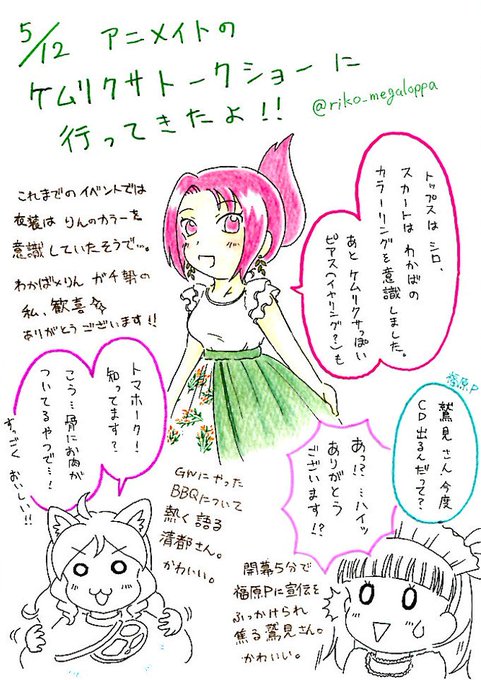 5/12 アニメイトの
ケムリクサトークショーに
行ってきたよ!!
@riko_megaloppa
トップスはシロ、
スカートはわかばの
カラーリングを意識しました。
あとケムリクサっぽい
ピアス(イヤリング?)も
これまでのイベントでは
衣装はりんのカラーを
意識していたそうで…。
わかば×りんガチ勢の
私、歓喜
ありがとうございます!!
福原P
鷲見さん今度
CD出るんだって?
あっ!?…ハイッ
ありがとう
ございます!?
トマホーク!
知ってます?
こう…骨にお肉が
ついてるやつで…!
すっごくおいしい!!
GWにやった
BBQについて
熱く語る
清都さん。
かわいい。
開幕5分で
福原Pに宣伝を
ぶっかけられ
焦る鷲見さん。
かわいい。